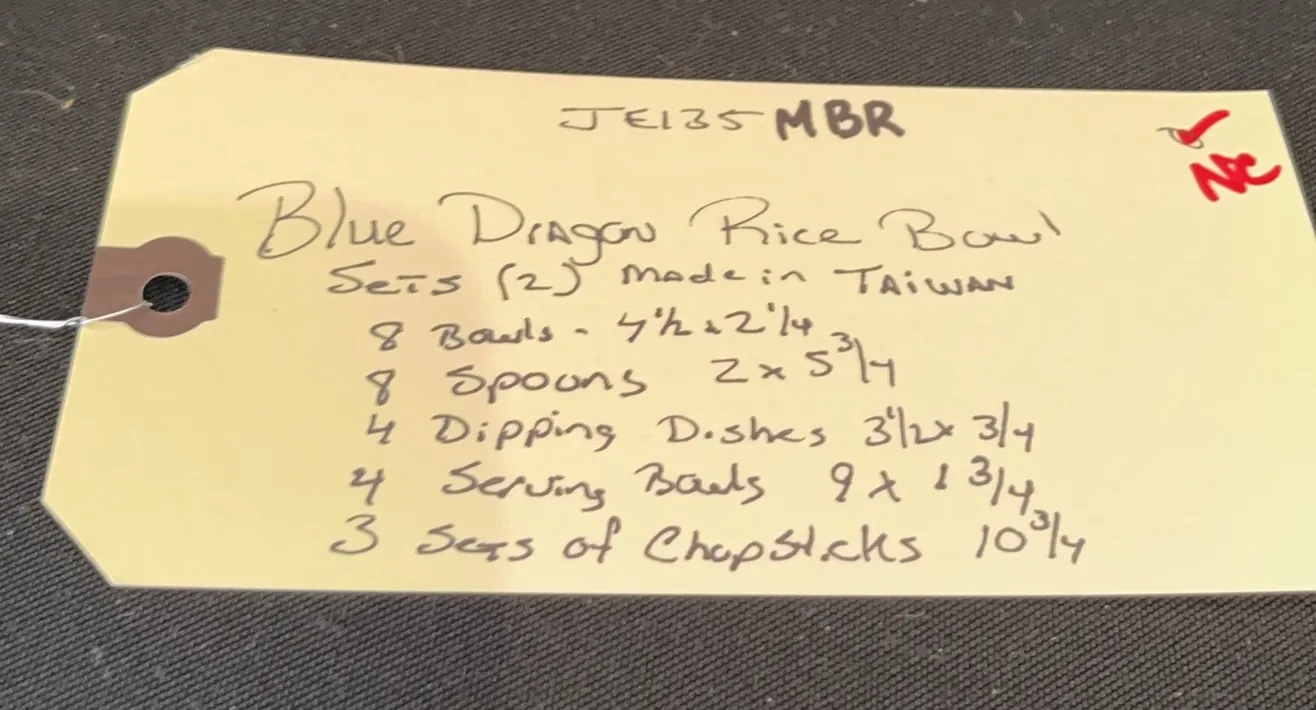 JE135 MBR
NC
Blue Dragon Rice Bowl
Sets (2) Made in TAIWAN
8 Bowls - 4 1/2 x 2 1/4
8 Spoons 2 x 5 3/4
4 Dipping Dishes 3 1/2 x 3/4
4 Serving Bowls 9 x 1 3/4
3 Sets of Chopsticks 10 3/4